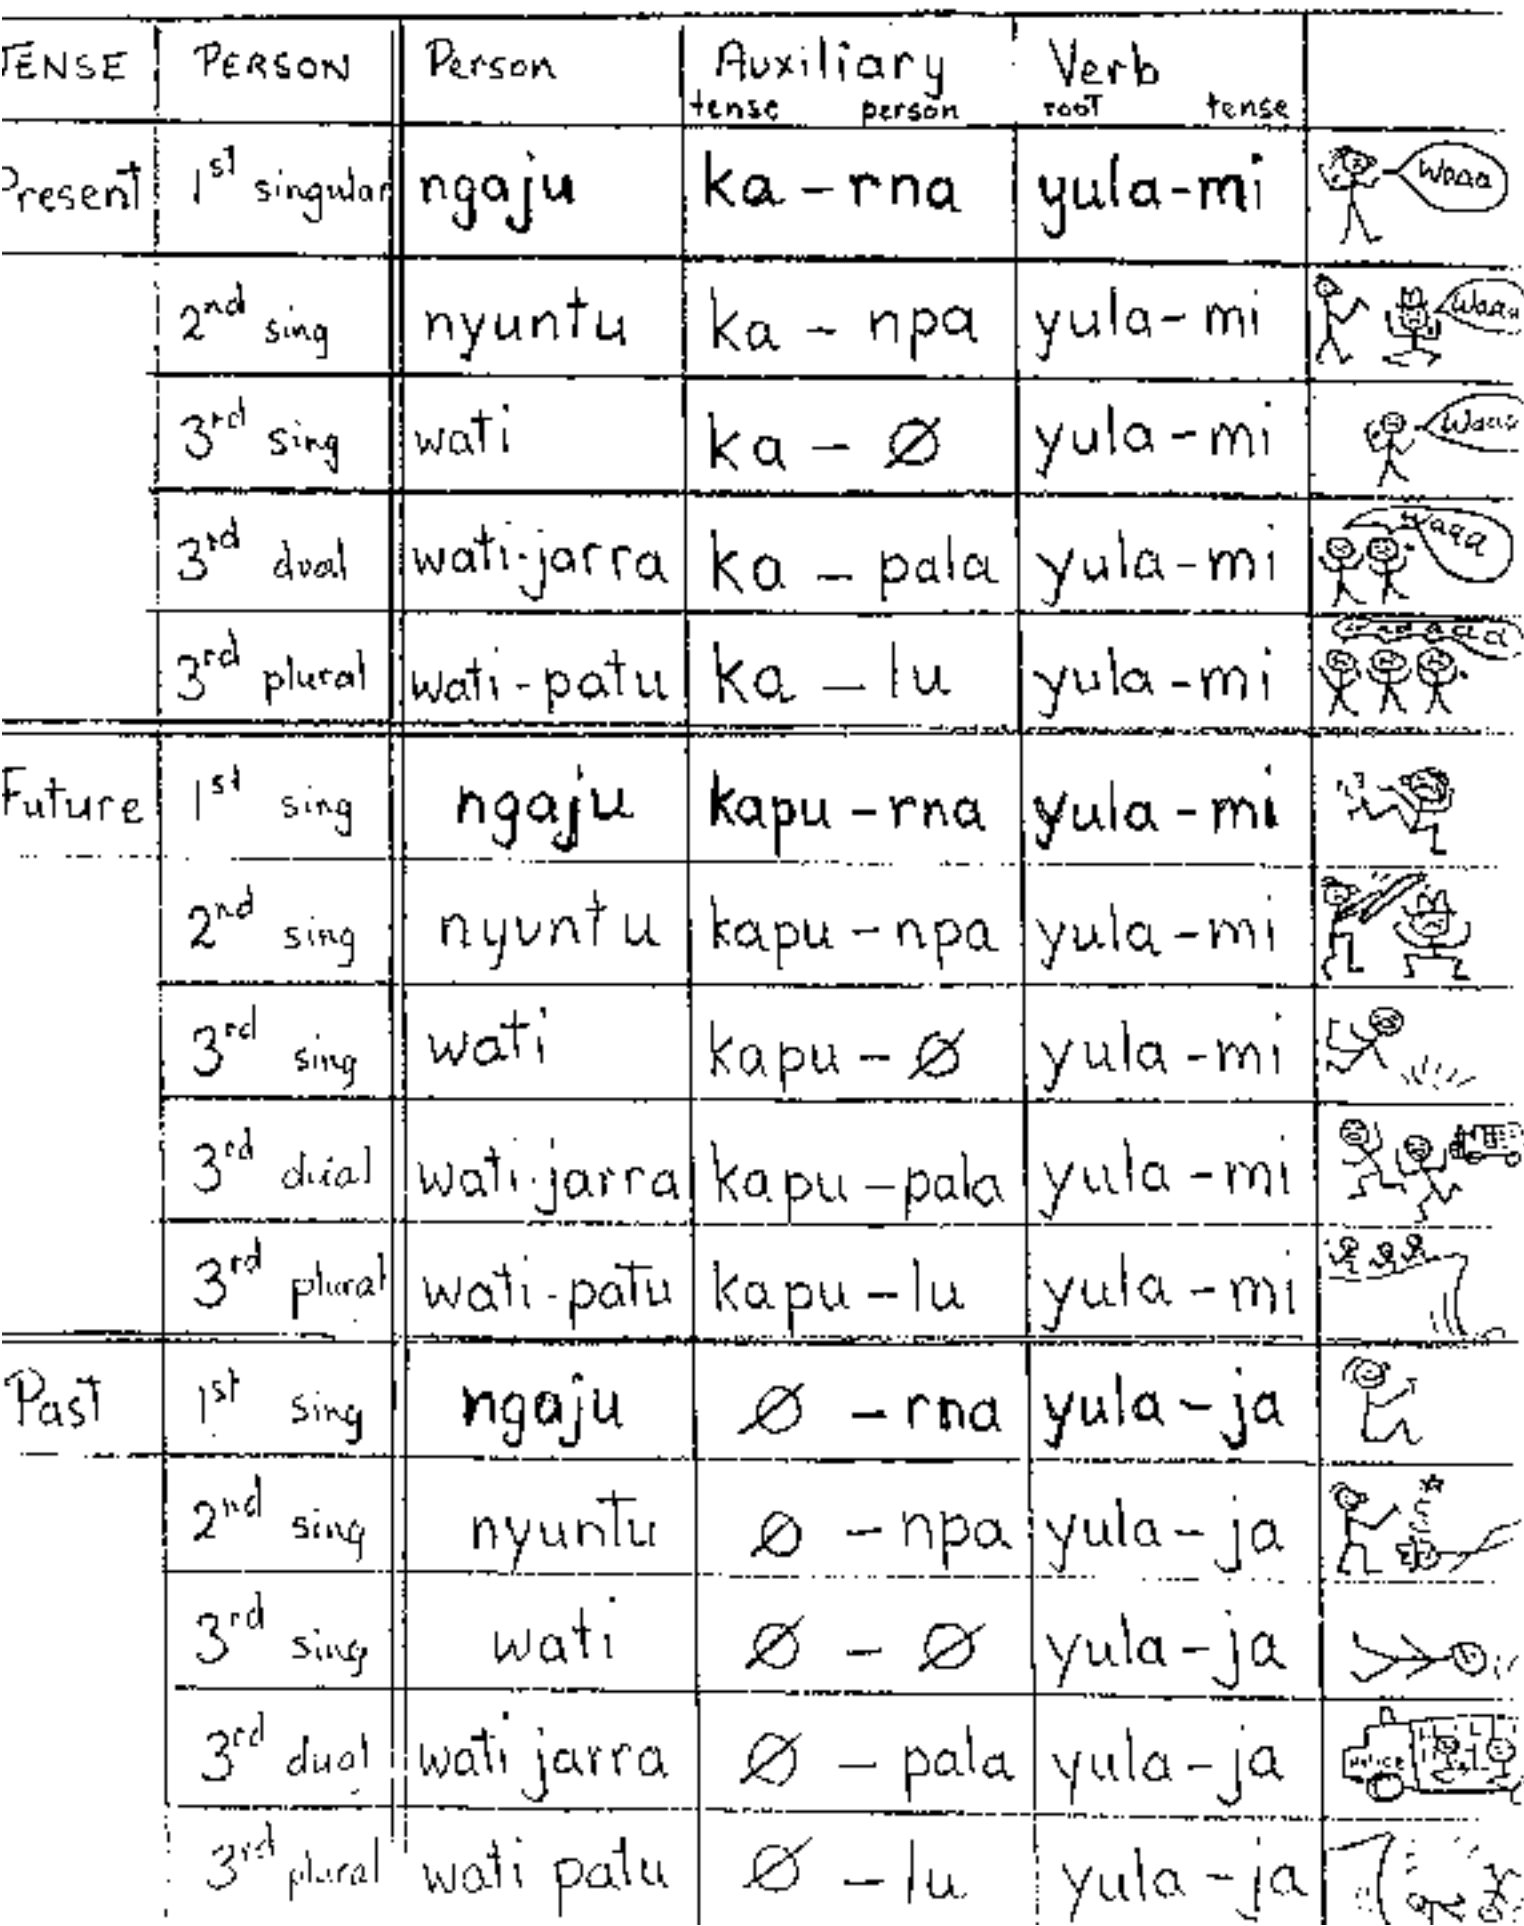 TENSE PERSON Person Auxiliary Verb
tense person root tense
Present 1st singular ngaju ka - rna yula-mi Waaa
2nd sing nyuntu ka - npa yula-mi Waaa
3rd sing wati ka - Ø yula-mi
3rd dual wati-jarra ka - pala yula-mi Waaa
3rd plural wati-patu ka - lu yula-mi
Future 1st sing ngaju kapu - rna yula-mi
2nd sing nyuntu kapu - npa yula-mi
3rd sing wati kapu - Ø yula-mi
3rd dual wati-jarra kapu - pala yula-mi
3rd plural wati-patu kapu - lu yula-mi
Past 1st sing ngaju Ø - rna yula-ja
2nd sing nyuntu Ø - npa yula-ja
3rd sing wati Ø - Ø yula-ja
3rd dual wati jarra Ø - pala yula-ja POLICE
3rd plural wati patu Ø - lu yula-ja